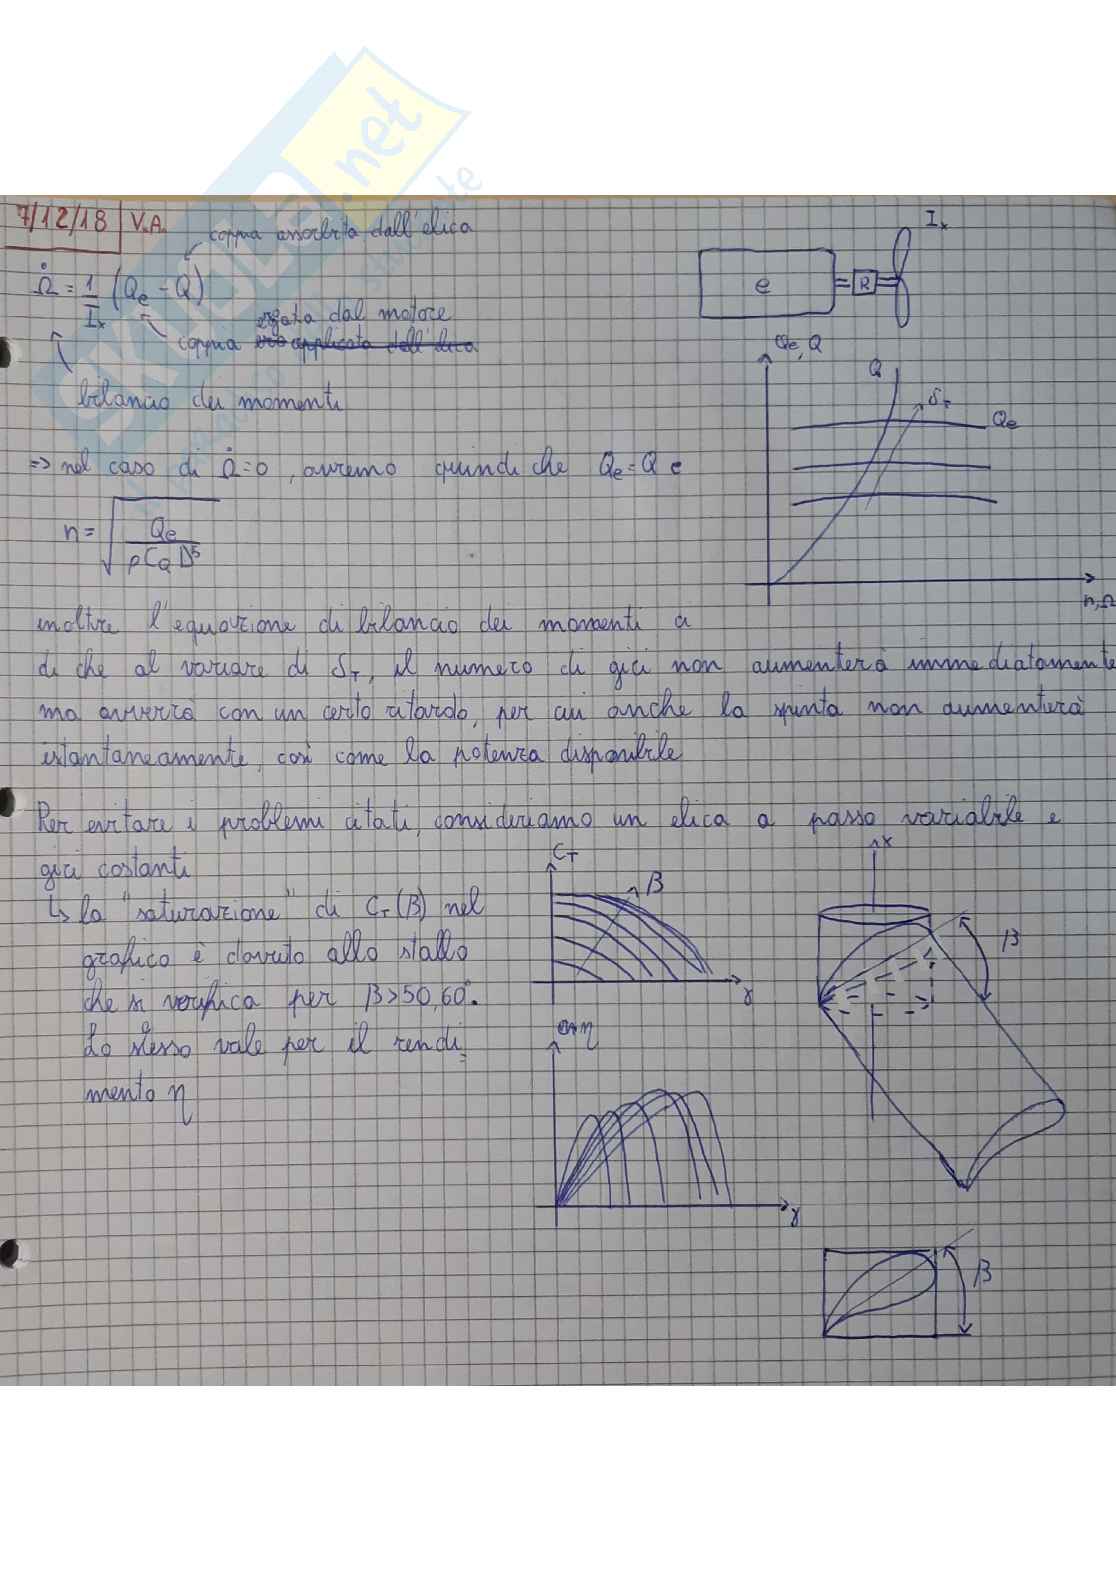 7/12/18 V.A.
coppia assorbita dall'elica
Ω̇ = 1/Iₓ (Qe - Q)
erogata dal motore
coppia applicata dell'elica
bilancio dei momenti
e R Iₓ
Qe, Q
Q δT Qe
n, Ω
=> nel caso di Ω̇=0, avremo quindi che Qe=Q e
n = √(Qe / ρ CQ D⁵)
inoltre l'equazione di bilancio dei momenti ci
di che al variare di δT, il numero di giri non aumenterà immediatamente
ma avverrà con un certo ritardo, per cui anche la spinta non aumenterà
istantaneamente, così come la potenza disponibile
Per evitare i problemi citati, consideriamo un elica a passo variabile e
giri costanti
↳ la "saturazione" di CT(β) nel
grafico è dovuto allo stallo
che si verifica per β>50,60°.
Lo stesso vale per il rendi
mento η
CT β γ
η γ
x β
β
SKUOLA.net